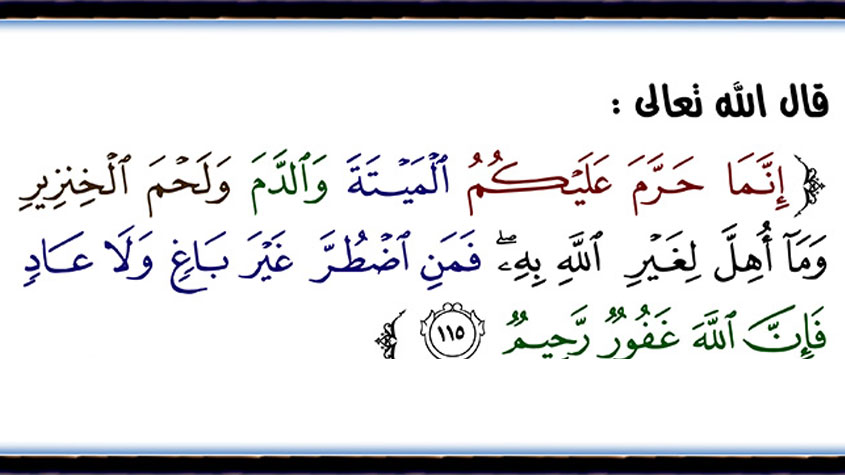 قال الله تعالى :
﴿ إِنَّمَا حَرَّمَ عَلَيۡكُمُ ٱلۡمَيۡتَةَ وَٱلدَّمَ وَلَحۡمَ ٱلۡخِنزِيرِ
وَمَآ أُهِلَّ لِغَيۡرِ ٱللَّهِ بِهِۦۖ فَمَنِ ٱضۡطُرَّ غَيۡرَ بَاغٖ وَلَا عَادٖ
فَإِنَّ ٱللَّهَ غَفُورٞ رَّحِيمٞ ١١٥ ﴾